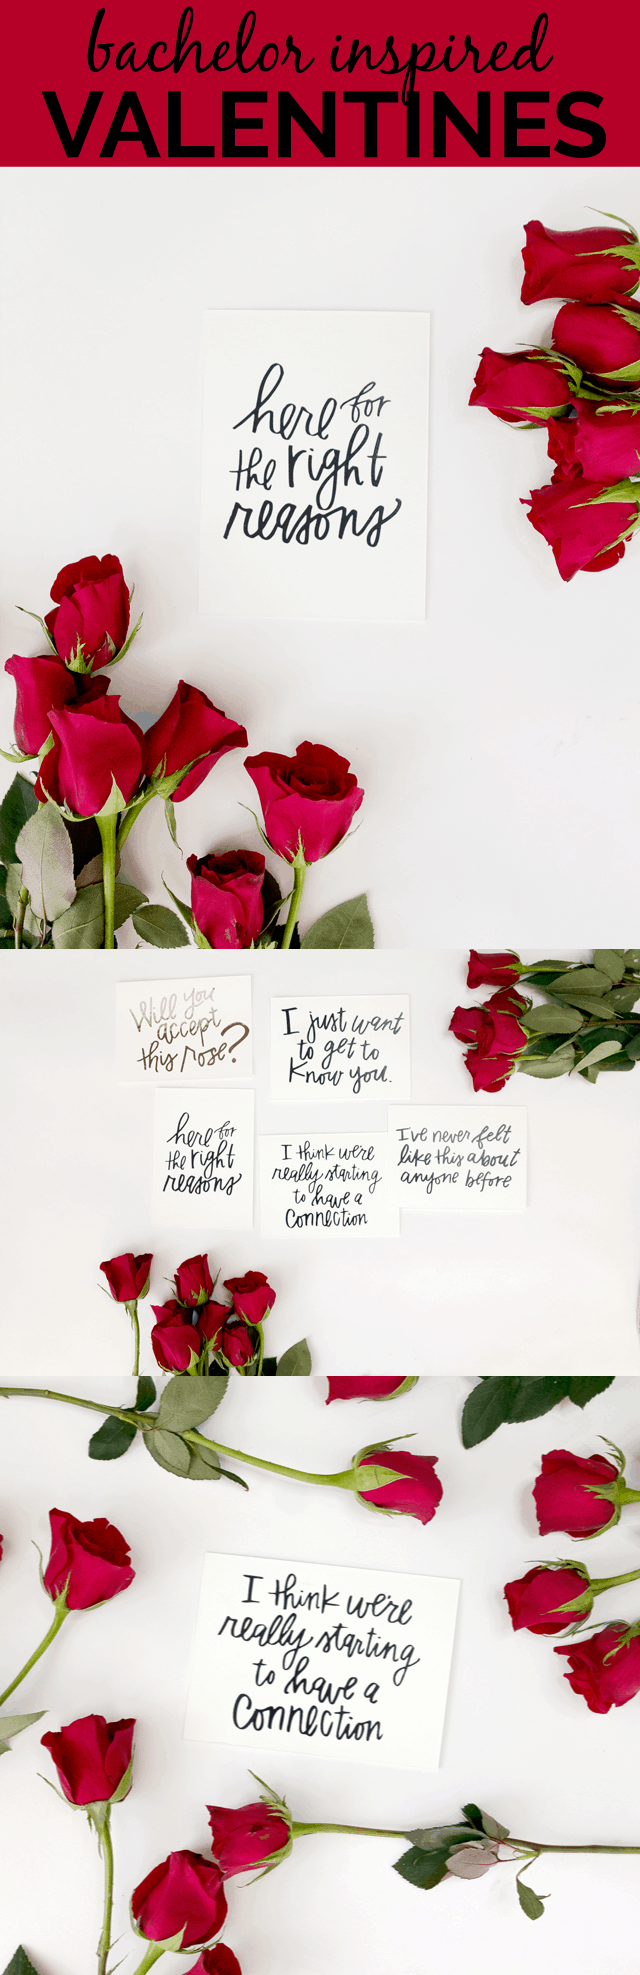 bachelor inspired
VALENTINES
here for
the right
reasons
Will you
accept
this rose?
I just want
to get to
know you.
here for
the right
reasons
I think we're
really starting
to have a
connection
I've never felt
like this about
anyone before
I think we're
really starting
to have a
connection